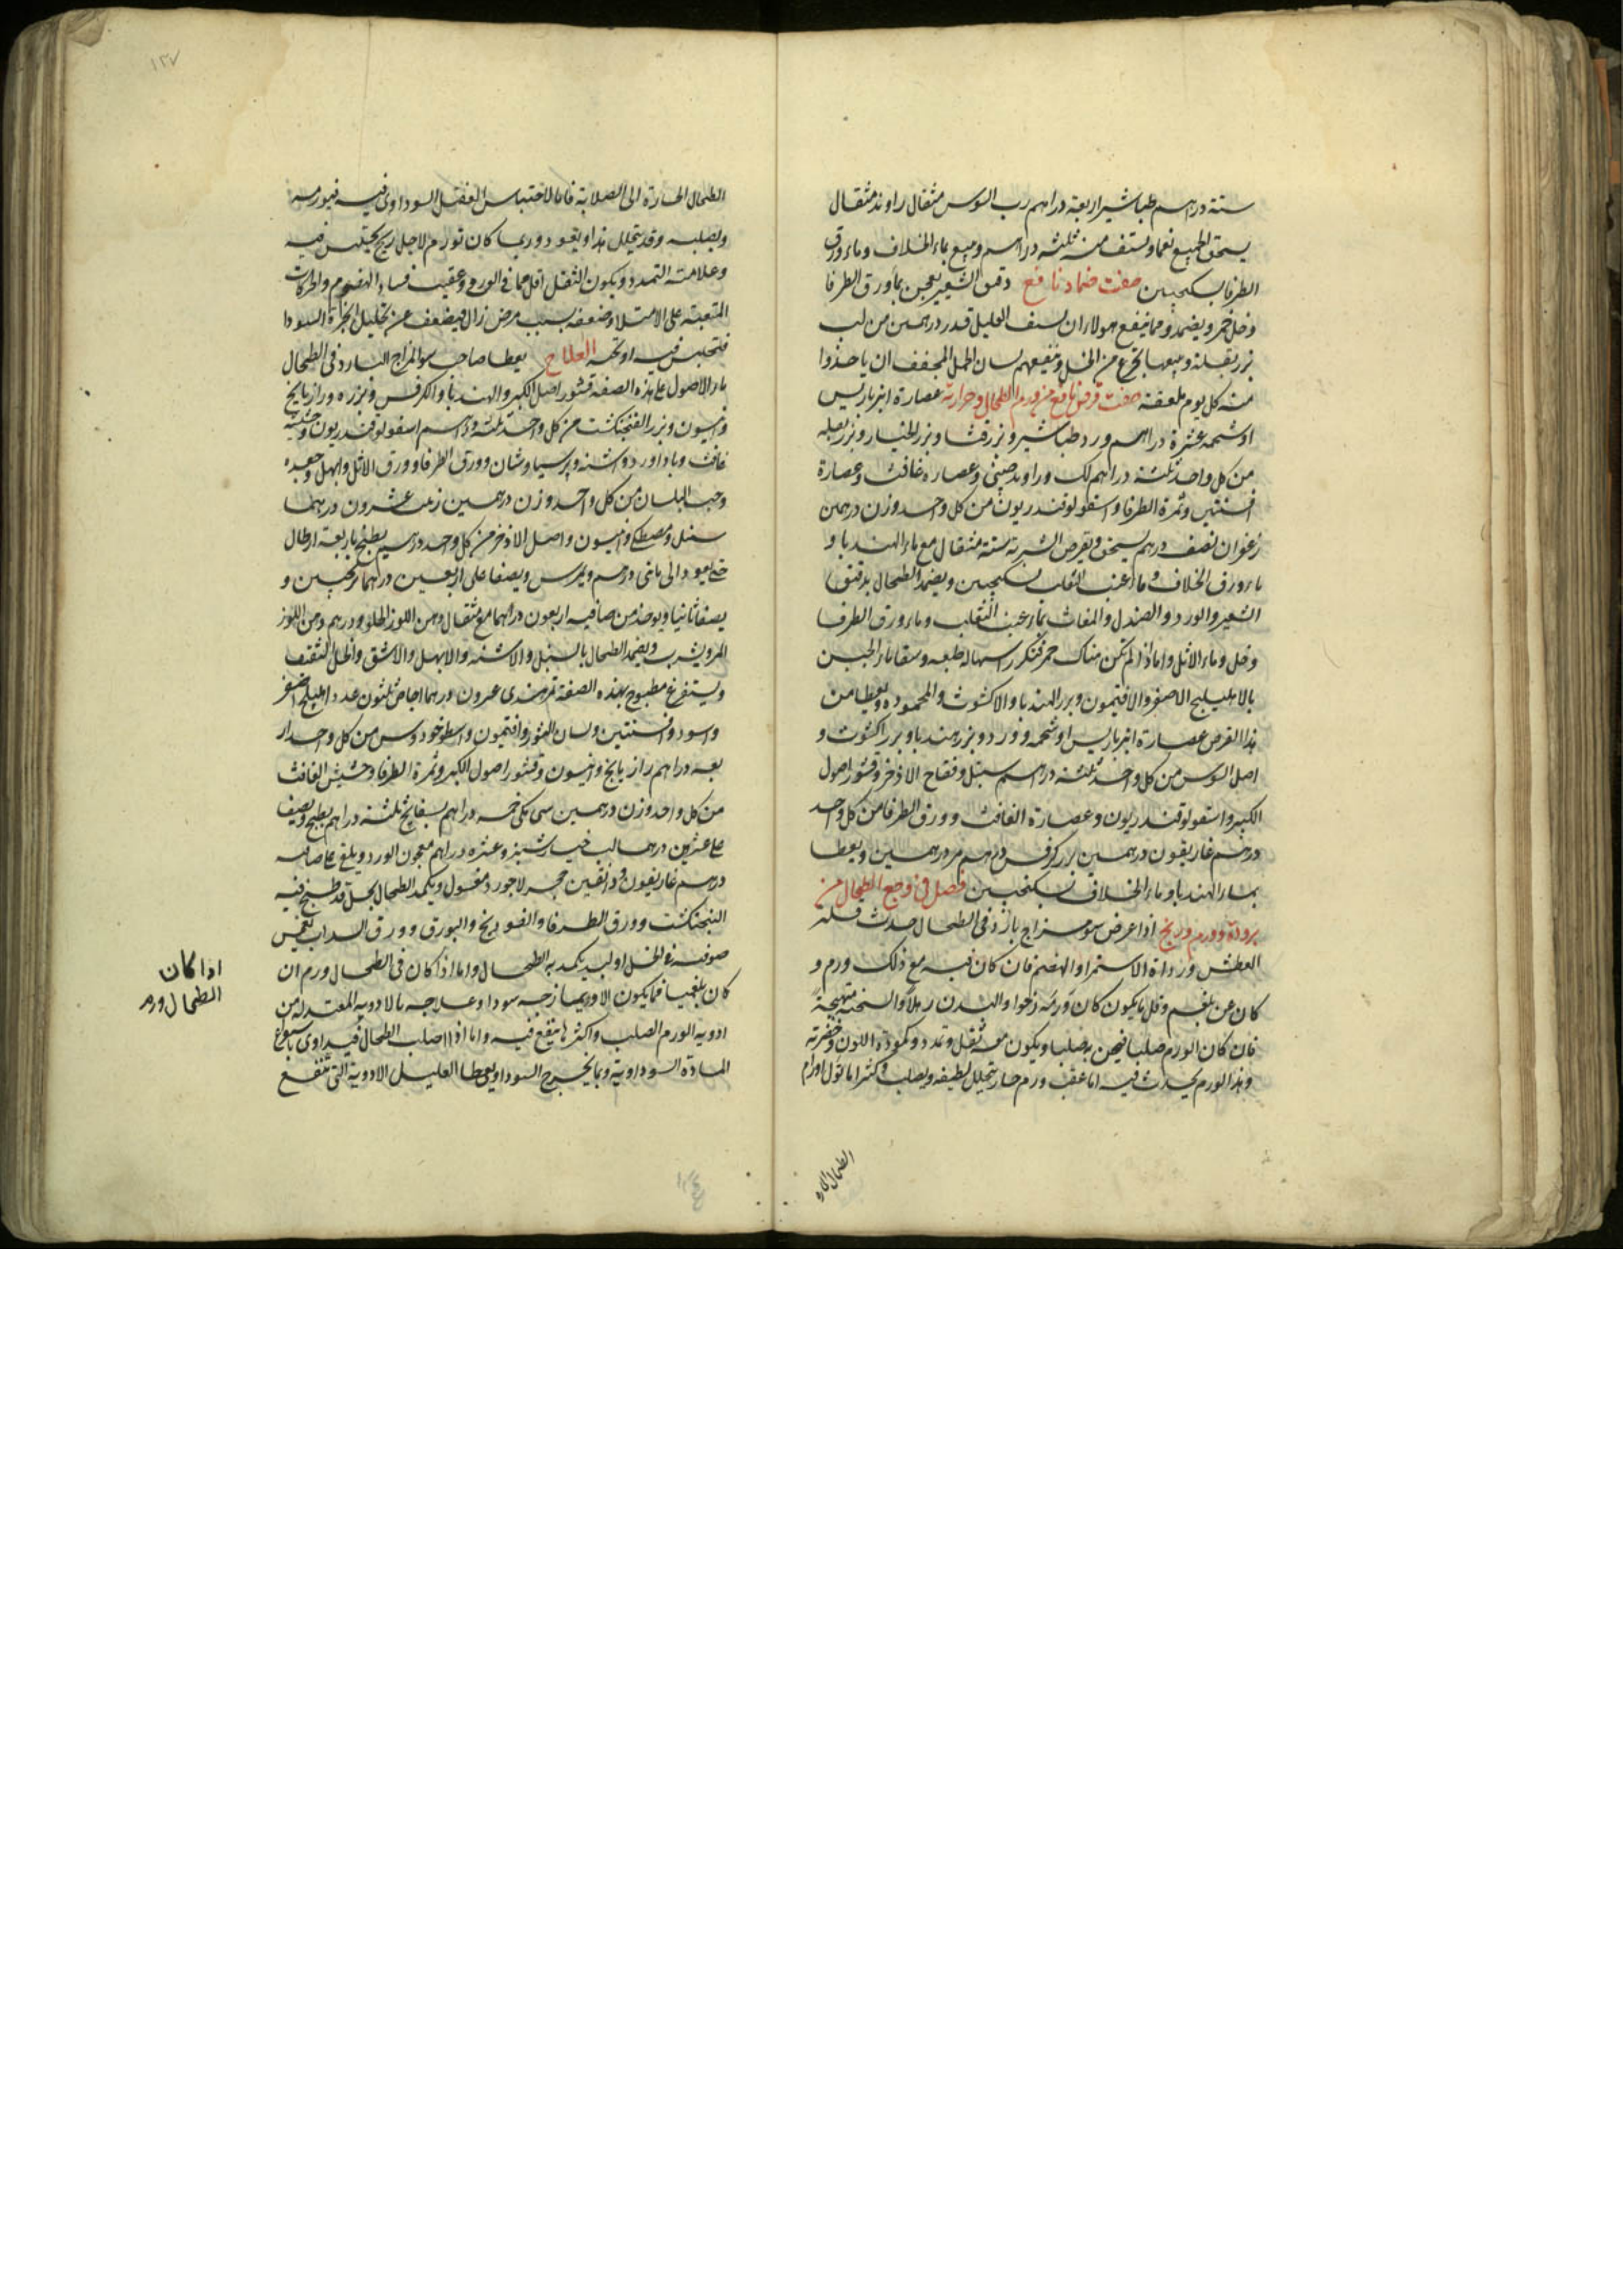 ستة دراهم طباشير اربعة دراهم رب السوس مثقال راوند مثقال
يسحق الجميع نعما ويستف منه ثلثه دراهم وميع بماء الخلاف وماء ورق
الطرفا بسكنجبين صفت ضماد نافع دقيق الشعير يعجن بماء ورق الطرفا
وخل خمر ويضمد ومما ينفع هولاء ان يستف العليل قدر درهمين من لب
بزر بقلة ويتبعها بجرع من الخل وينفعهم لسان الحمل المجفف ان ياخذوا
منه كل يوم ملعقة صفت قرص نافع من ورم الطحال وحرارته عصارة انبرباريس
اوشحمه عشرة دراهم ورد طباشير وبزر قثا وبزر الخيار وبزر بقله
من كل واحد ثلثة دراهم لك وراوند صينى وعصاره غافث وعصارة
افسنتين وثمرة الطرفا واسقولوقندريون من كل واحد وزن درهمين
زعفران نصف درهم يسحق ويقرص الشربة ستة مثقال مع ماء الهندبا و
ماء ورق الخلاف وماء عنب الثعلب بسكنجبين ويضمد الطحال بدقيق
الشعير والورد والصندل والمغاث بماء عنب الثعلب وماء ورق الطرفا
وخل وماء الاثل واما اذا لم تكن هناك حمر فتكرر اسهاله طبعه وسقا ماء الجبن
بالاهليلج الاصفر والافتيمون وبزر الهندبا والاكشوث والمحموده ويعطا من
هذا القرص عصارة انبرباريس اوشحمه وورد وبزر هندبا وبزر اكشوث و
اصل السوس من كل واحد ثلثة دراهم سنبل وفقاح الاذخر وقشور اصول
الكبر واسقولوقندريون وعصارة الغافث وورق الطرفا من كل واحد
درهم غاريقون درهمين بزر كرفس درهم مر درهمين ويعطا
بماء الهندبا وماء الخلاف بسكنجبين فصل فى وجع الطحال من
برودة وورم وريح اذا عرض سوء مزاج بارد فى الطحال حدث قلة
العطش ورداة الاستمرا والهضم فان كان فيه مع ذلك ورم و
كان عن بلغم وقل ما يكون كان ورمه رخوا والبدن رهلا والسحنه متهيجة
فان كان الورم صلبا فيحس به صلبا ويكون معه ثقل وتمدد وكمودة اللون وخضرته
وهذا الورم يحدث فيه اما عقب ورم حار يتحلل لطيفه ويصلب وكثيرا ما تول اورام
الطحال الحاره
١٢٧
الطحال الحارة الى الصلابة فاما لاحتباس الفضل السوداوى فيه فيورمه
ويصلبه وقد يتحلل هذا ويعود وربما كان تورم لاجل ريح يحتبس فيه
وعلامته التمدد ويكون الثقل اقل مما فى الورم وعقيب فساد الهضوم والحركات
المتعبة على الامتلا وضعفه بسبب مرض زال فيضعف عن تحليل ابخرة السودا
فتحتبس فيه او تحته العلاج يعطا صاحب سوء المزاج البارد فى الطحال
ماء الاصول على هذه الصفة قشور اصل الكبر والهندبا والكرفس وبزره ورازيانج
وانيسون وبزر الفنجنكشت من كل واحد ثلثة دراهم اسقولوقندريون وحشيشة
غافث وباداورد واشنه وبرسياوشان وورق الطرفا وورق الاثل وابهل وجعده
وحب البلسان من كل واحد وزن درهمين زبيب عشرون درهما
سنبل ومصطكى وانيسون واصل الاذخر من كل واحد درهم يطبخ باربعة ارطال
حتى يعود الى مائتى درهم ويمرس ويصفا على اربعين درهما ترنجبين و
يصفا ثانيا ويوخذ من صافيه اربعون درهما مع مثقال دهن اللوز الحلو ودرهم دهن اللوز
المر ويشرب ويضمد الطحال بالسنبل والاشنه والابهل والاشق والخل الثقيف
ويستفرغ بمطبوخ بهذه الصفة تمر هندى عشرون درهما اجاص ثلثون عددا هليلج اصفر
واسود وافسنتين ولسان الثور وافتيمون واسطوخودوس من كل واحد ار
بعه دراهم رازيانج وانيسون وقشور اصول الكبر وثمرة الطرفا وحشيش الغافث
من كل واحد وزن درهمين سنى مكى خمسه دراهم بسفايج ثلثة دراهم يطبخ ويصفى
على عشرين درهما لب خيارشنبر وعشره دراهم معجون الورد ويلقى على صافيه
درهم غاريقون ودانقين حجر لاجورد مغسول ويكمد الطحال بخل قد طبخ فيه
الفنجنكشت وورق الطرفا والفودنج والبورق وورق السداب تغمس
صوفة فى الخل او لبد يكمد به الطحال واما اذا كان فى الطحال ورم ان
كان بلغميا فما يكون الا وربما زجه سودا وعلاجه بالادويه المعتدله من
ادوية الورم الصلب واكثر ما ينفع فيه واما اذا اصلب الطحال فيداوى باستفراغ
المادة السوداوية وبما يخرج السودا ويعطا العليل الادوية التى تنفع
اذا كان
الطحال ورم